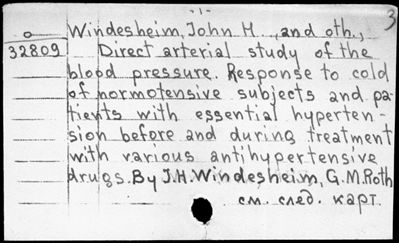 -1-
3
o Windesheim, John H., and oth.,
32809 Direct arterial study of the
blood pressure. Response to cold
of normotensive subjects and pa-
tients with essential hyperten-
sion before and during treatment
with various antihypertensive
drugs. By J.H. Windesheim, G.M. Roth
см. след. карт.